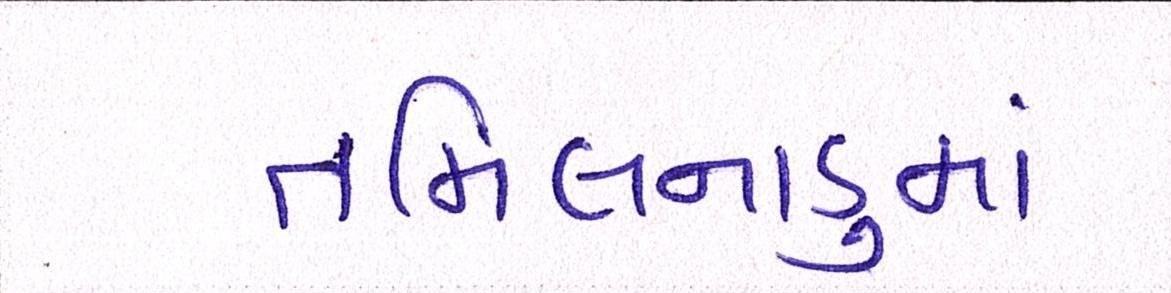 તમિલનાડુમાં